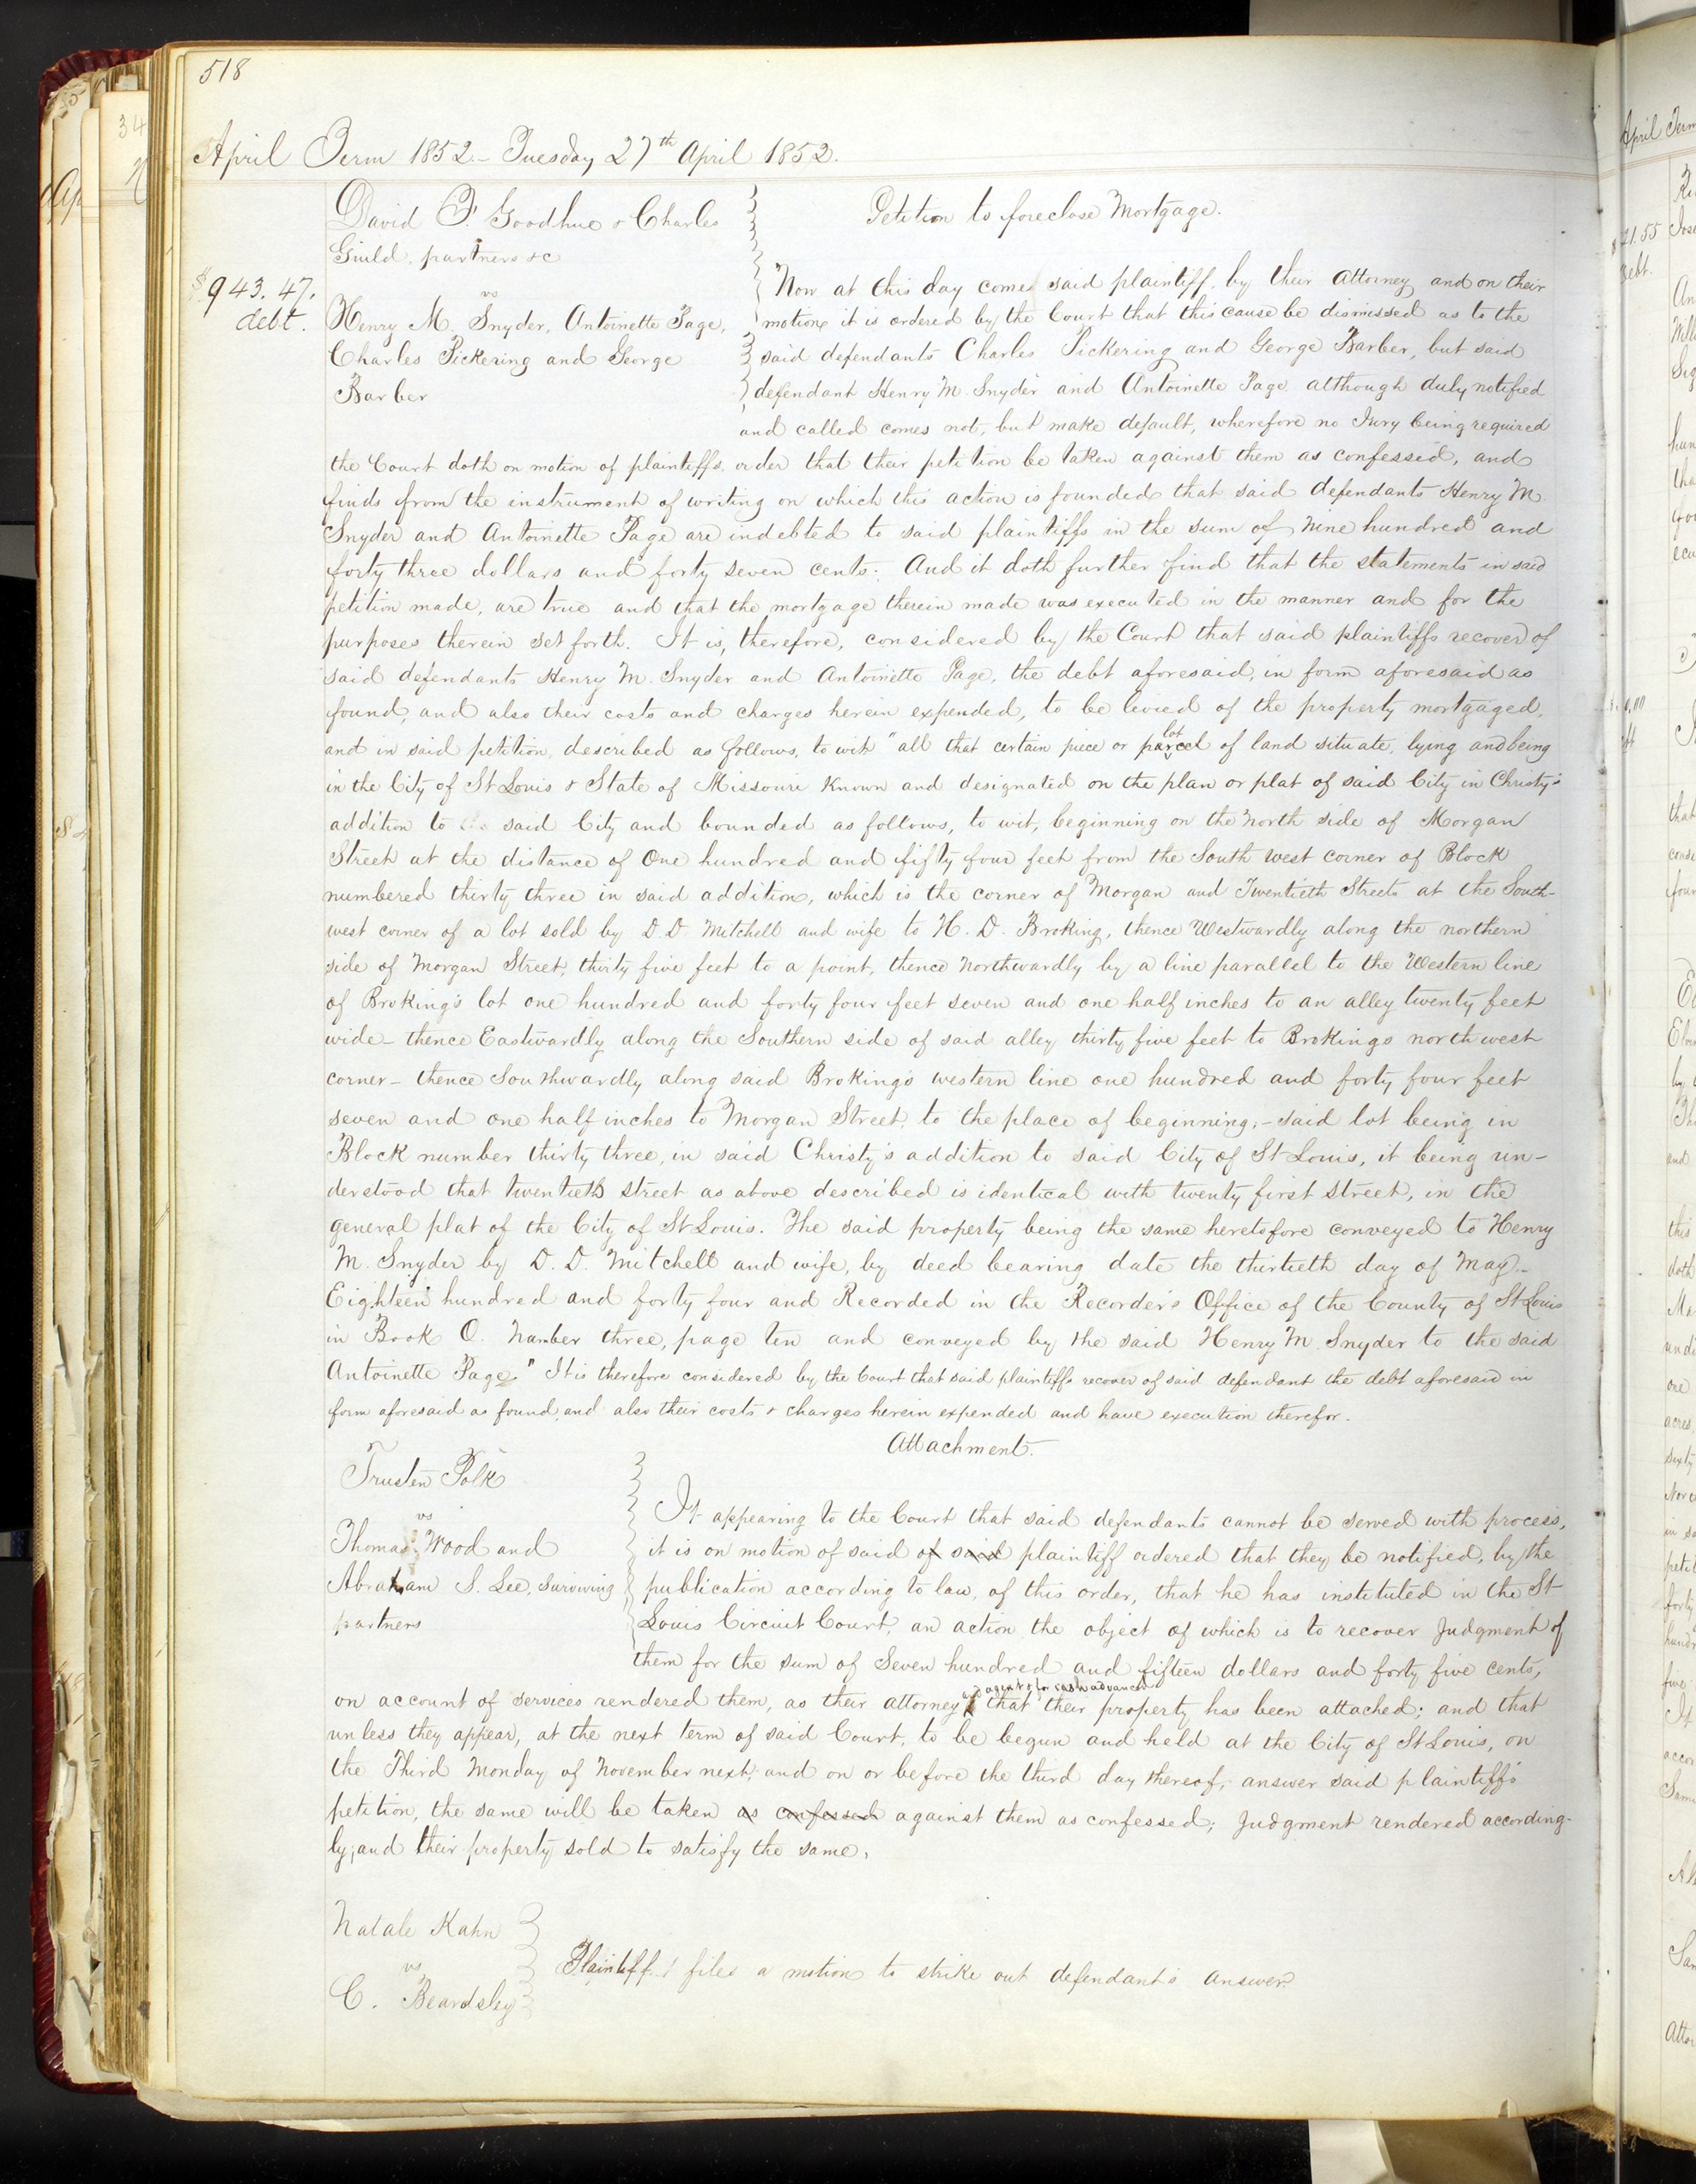 518
April Term 1852 - Tuesday 27th April 1852.
David F. Goodhue & Charles
Guild, partners &c
vs
Henry M. Snyder, Antoinette Page,
Charles Pickering and George
Barber
$943.47.
debt.
Petition to foreclose Mortgage.
Now at this day comes said plaintiff, by their attorney and on their
motion, it is ordered by the Court that this cause be dismissed as to the
said defendants Charles Pickering and George Barber, but said
defendant Henry M. Snyder and Antoinette Page although duly notified
and called comes not, but make default, wherefore no Jury being required
the Court doth on motion of plaintiffs, order that their petition be taken against them as confessed, and
finds from the instrument of writing on which this action is founded that said defendants Henry M.
Snyder and Antoinette Page are indebted to said plaintiffs in the sum of Nine hundred and
forty three dollars and forty seven cents: And it doth further find that the statements in said
petition made, are true and that the mortgage therein made was executed in the manner and for the
purposes therein set forth. It is, therefore, considered by the Court that said plaintiffs recover of
said defendants Henry M. Snyder and Antoinette Page, the debt aforesaid, in form aforesaid as
found, and also their costs and charges herein expended, to be levied of the property mortgaged,
and in said petition, described as follows, to wit "all that certain piece or lot parcel of land situate, lying and being
in the City of St Louis & State of Missouri known and designated on the plan or plat of said City in Christy's
addition to said City and bounded as follows, to wit, beginning on the North side of Morgan
Street at the distance of One hundred and fifty four feet from the South west corner of Block
numbered thirty three in said addition, which is the corner of Morgan and Twentieth Streets at the South-
west corner of a lot sold by D. D. Mitchell and wife to H. D. Broking, thence Westwardly along the northern
side of Morgan Street, thirty five feet to a point, thence Northwardly by a line parallel to the Western line
of Broking's lot one hundred and forty four feet seven and one half inches to an alley twenty feet
wide - thence Eastwardly along the Southern side of said alley thirty five feet to Brokings north west
corner - thence Southwardly along said Broking's western line one hundred and forty four feet
seven and one half inches to Morgan Street, to the place of beginning, - said lot being in
Block number thirty three, in said Christy's addition to said City of St Louis, it being un-
derstood that twentieth street as above described is identical with twenty first street, in the
general plat of the City of St Louis. The said property being the same heretofore conveyed to Henry
M. Snyder by D. D. Mitchell and wife, by deed bearing date the thirtieth day of May -
Eighteen hundred and forty four and Recorded in the Recorder's Office of the County of St Louis
in Book O. Number three, page ten and conveyed by the said Henry M Snyder to the said
Antoinette Page." It is therefore considered by the Court that said plaintiffs recover of said defendant the debt aforesaid in
form aforesaid as found, and also their costs & charges herein expended and have execution therefor.
Attachment.
Trusten Polk
vs
Thomas Wood and
Abraham S. Lee, surviving
partners
It appearing to the Court that said defendants cannot be served with process,
it is on motion of said of said plaintiff ordered that they be notified, by the
publication according to law, of this order, that he has instituted in the St
Louis Circuit Court, an action the object of which is to recover Judgment of
them for the sum of Seven hundred and fifteen dollars and forty five cents,
on account of services rendered them, as their attorney and agent & for cash advanced that their property has been attached; and that
unless they appear, at the next term of said Court, to be begun and held at the City of St Louis, on
the Third Monday of November next, and on or before the third day thereof, answer said plaintiff's
petition, the same will be taken as confessed against them as confessed; Judgment rendered according-
ly, and their property sold to satisfy the same.
Natale Kahn
vs
C. Beardsley
Plaintiff files a motion to strike out defendant's answer.